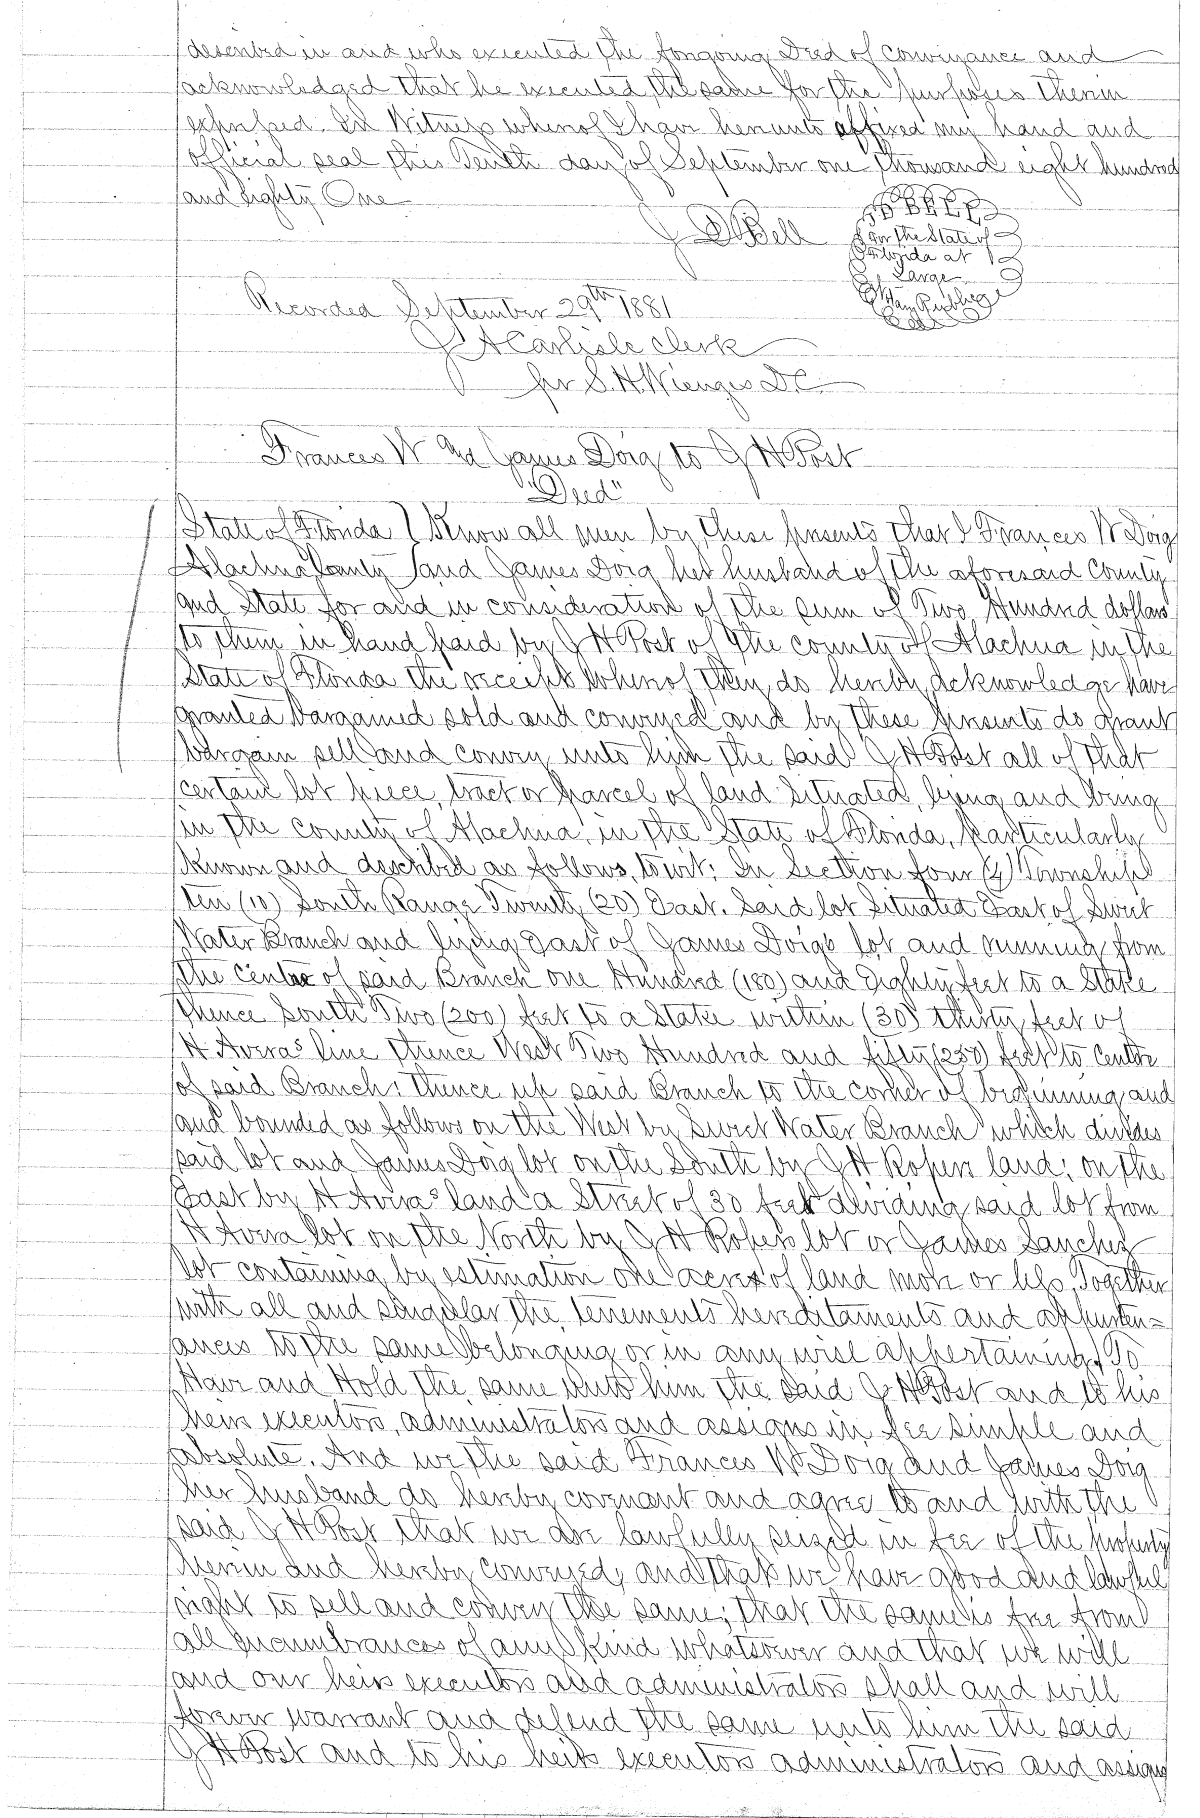 described in and who executed the forgoing Deed of Conveyance and
acknowledged that he executed the same for the purposes therein
expressed. In Witness whereof I have hereunto affixed my hand and
official seal this Tenth day of September one thousand eight hundred
and eighty One
J D Bell
J D BELL
For the State of
Florida at
Large
Notary Public
Recorded September 29th 1881
J A Carlisle Clerk
per S. H. Wienges D.C.
Frances W and James Doig to J H Post
"Deed"
State of Florida } Know all men by these presents that I Frances W Doig
Alachua County } and James Doig her husband of the aforesaid County
and State for and in consideration of the sum of Two Hundred dollars
to them in hand paid by J H Post of the county of Alachua in the
State of Florida the receipt whereof they do hereby acknowledge have
granted bargained sold and conveyed and by these presents do grant
bargain sell and convey unto him the said J H Post all of that
certain lot piece, tract or parcel of land situated, lying and being
in the county of Alachua, in the State of Florida, particularly
known and described as follows, to wit: In Section four (4) Township
ten (10) South Range Twenty (20) East. Said lot Situated East of Sweet
Water Branch and lying East of James Doigs lot and running from
the center of said Branch one Hundred (180) and Eighty feet to a Stake
thence South Two (200) feet to a Stake within (30) thirty feet of
H Averas line thence West Two Hundred and fifty (250) feet to Centre
of said Branch: thence up said Branch to the corner of beginning and
and bounded as follows on the West by Sweet Water Branch which divides
said lot and James Doig lot on the South by J H Ropers land; on the
East by H Averas land a Street of 30 feet dividing said lot from
H Avera lot on the North by J H Ropers lot or James Sanchez
lot containing by estimation one acre of land more or less, Together
with all and singular the tenements hereditaments and appurten=
ances to the same belonging or in any wise appertaining, To
Have and Hold the same unto him the said J H Post and to his
heirs executors, administrators and assigns in fee simple and
absolute. And we the said Frances W Doig and James Doig
her husband do hereby covenant and agree to and with the
said J H Post that we are lawfully seized in fee of the property
herein and hereby conveyed, and that we have good and lawful
right to sell and convey the same; that the same is free from
all encumbrances of any kind whatsoever and that we will
and our heirs executors and administrators shall and will
forever warrant and defend the same unto him the said
J H Post and to his heirs executors administrators and assigns